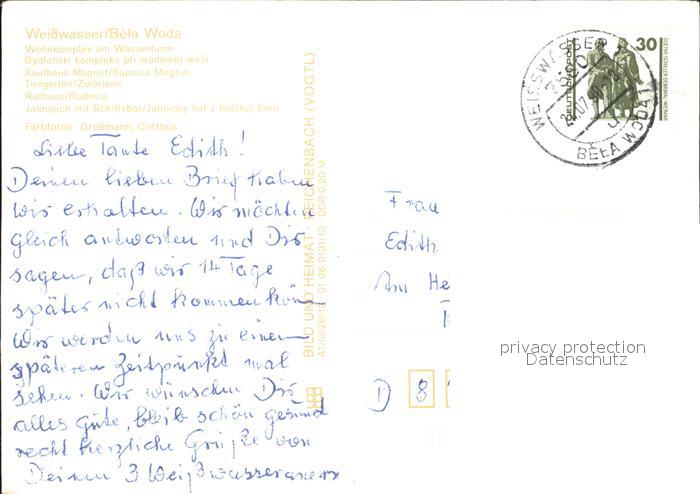 Weißwasser/Běła Woda
Wohnkomplex am Wasserturm
Bydlenski kompleks při wodowej wěži
Kaufhaus Magnet/Kupnica Magnet
Tiergarten/Zwěrjenc
Rathaus/Radnica
Jahnteich mit Schiffsbar/Jahnowy hat z łódźnej baru
Farbfotos: Großmann, Cottbus
Liebe Tante Edith!
Deinen lieben Brief haben
wir erhalten. Wir möchten
gleich antworten und Dir
sagen, daß wir 14 Tage
später nicht kommen kön
Wir werden uns zu einem
späteren Zeitpunkt mal
sehen. Wir wünschen Dir
alles Gute, bleib schön gesund
recht herzliche Grüße von
Deinen 3 Weißwasseranern
BILD UND HEIMAT REICHENBACH (VOGTL)
A1/III/26/13 01 06 0131/13 DDR 0,20 M
WEISSWASSER
BĚŁA WODA
DEUTSCHE POST
30
GOETHE-SCHILLER-DENKMAL WEIMAR
Frau
Edith
Am He
D 8
privacy protection
Datenschutz